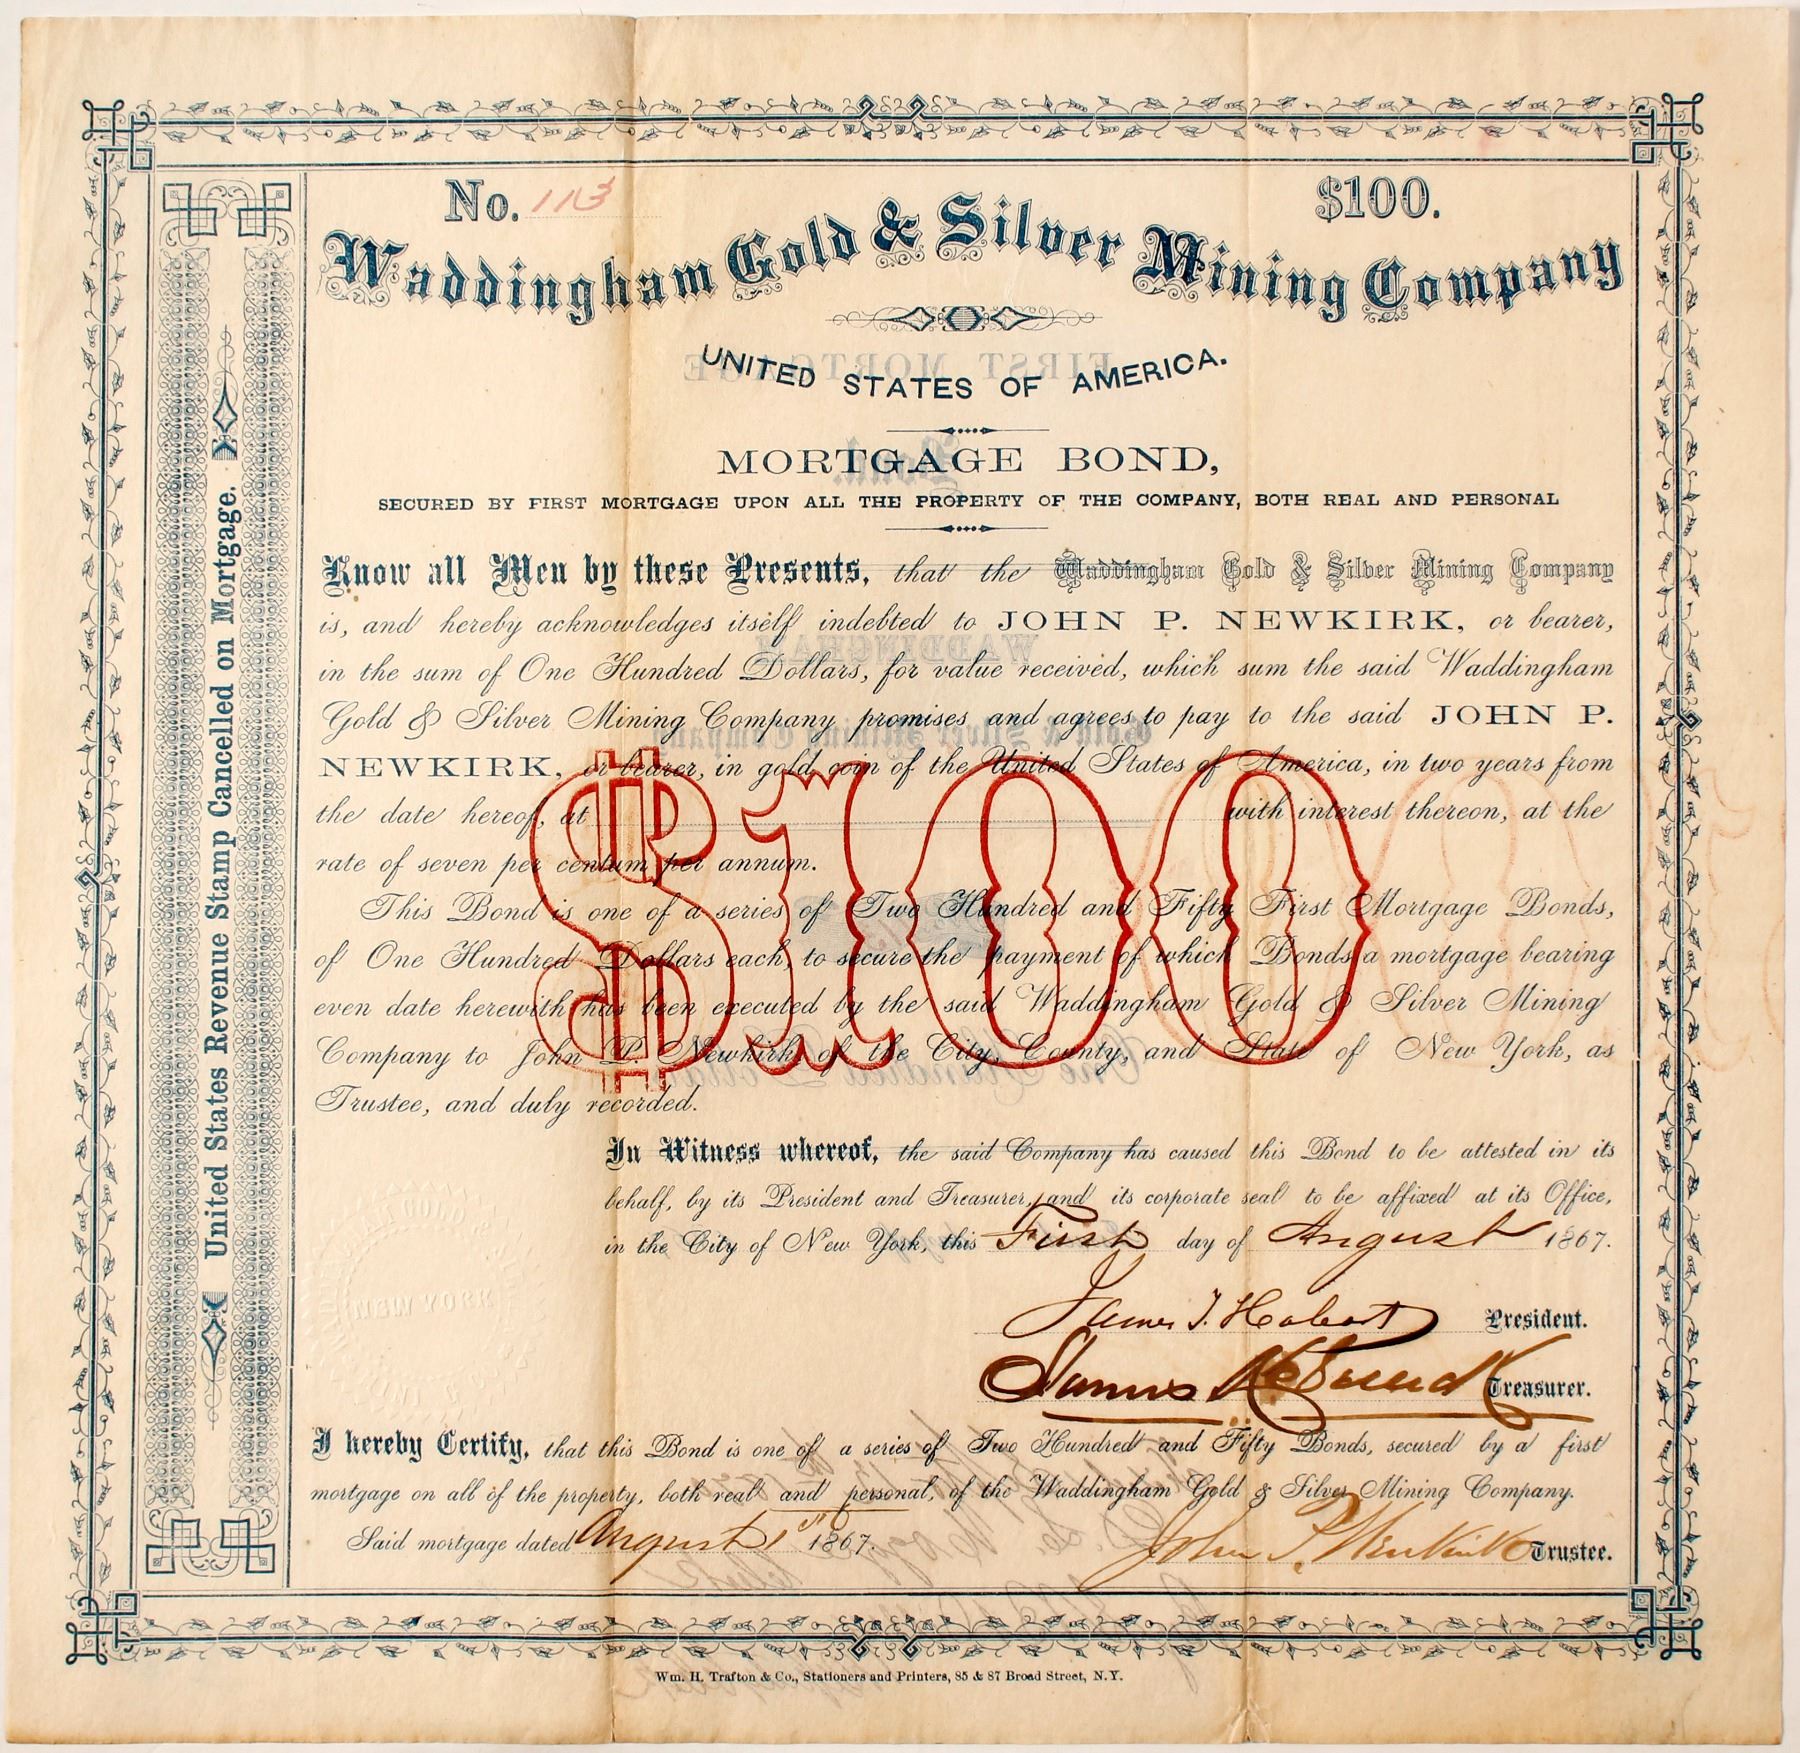 No. 113
$100.
Waddingham Gold & Silver Mining Company
UNITED STATES OF AMERICA.
MORTGAGE BOND,
SECURED BY FIRST MORTGAGE UPON ALL THE PROPERTY OF THE COMPANY, BOTH REAL AND PERSONAL
Know all Men by these Presents, that the Waddingham Gold & Silver Mining Company
is, and hereby acknowledges itself indebted to JOHN P. NEWKIRK, or bearer,
in the sum of One Hundred Dollars, for value received, which sum the said Waddingham
Gold & Silver Mining Company promises and agrees to pay to the said JOHN P.
NEWKIRK, or bearer, in gold coin of the United States of America, in two years from
the date hereof, at with interest thereon, at the
rate of seven per centum per annum.
$100
This Bond is one of a series of Two Hundred and Fifty First Mortgage Bonds,
of One Hundred Dollars each, to secure the payment of which Bonds a mortgage bearing
even date herewith has been executed by the said Waddingham Gold & Silver Mining
Company to John P. Newkirk of the City, County, and State of New York, as
Trustee, and duly recorded.
In Witness whereof, the said Company has caused this Bond to be attested in its
behalf, by its President and Treasurer, and its corporate seal to be affixed at its Office,
in the City of New York, this First day of August 1867.
James T. Hobart President.
James Treasurer.
I hereby Certify, that this Bond is one of a series of Two Hundred and Fifty Bonds, secured by a first
mortgage on all of the property, both real and personal, of the Waddingham Gold & Silver Mining Company.
Said mortgage dated August 1st 1867.
John P. Newkirk Trustee.
United States Revenue Stamp Cancelled on Mortgage.
NEW YORK
Wm. H. Trafton & Co., Stationers and Printers, 85 & 87 Broad Street, N.Y.